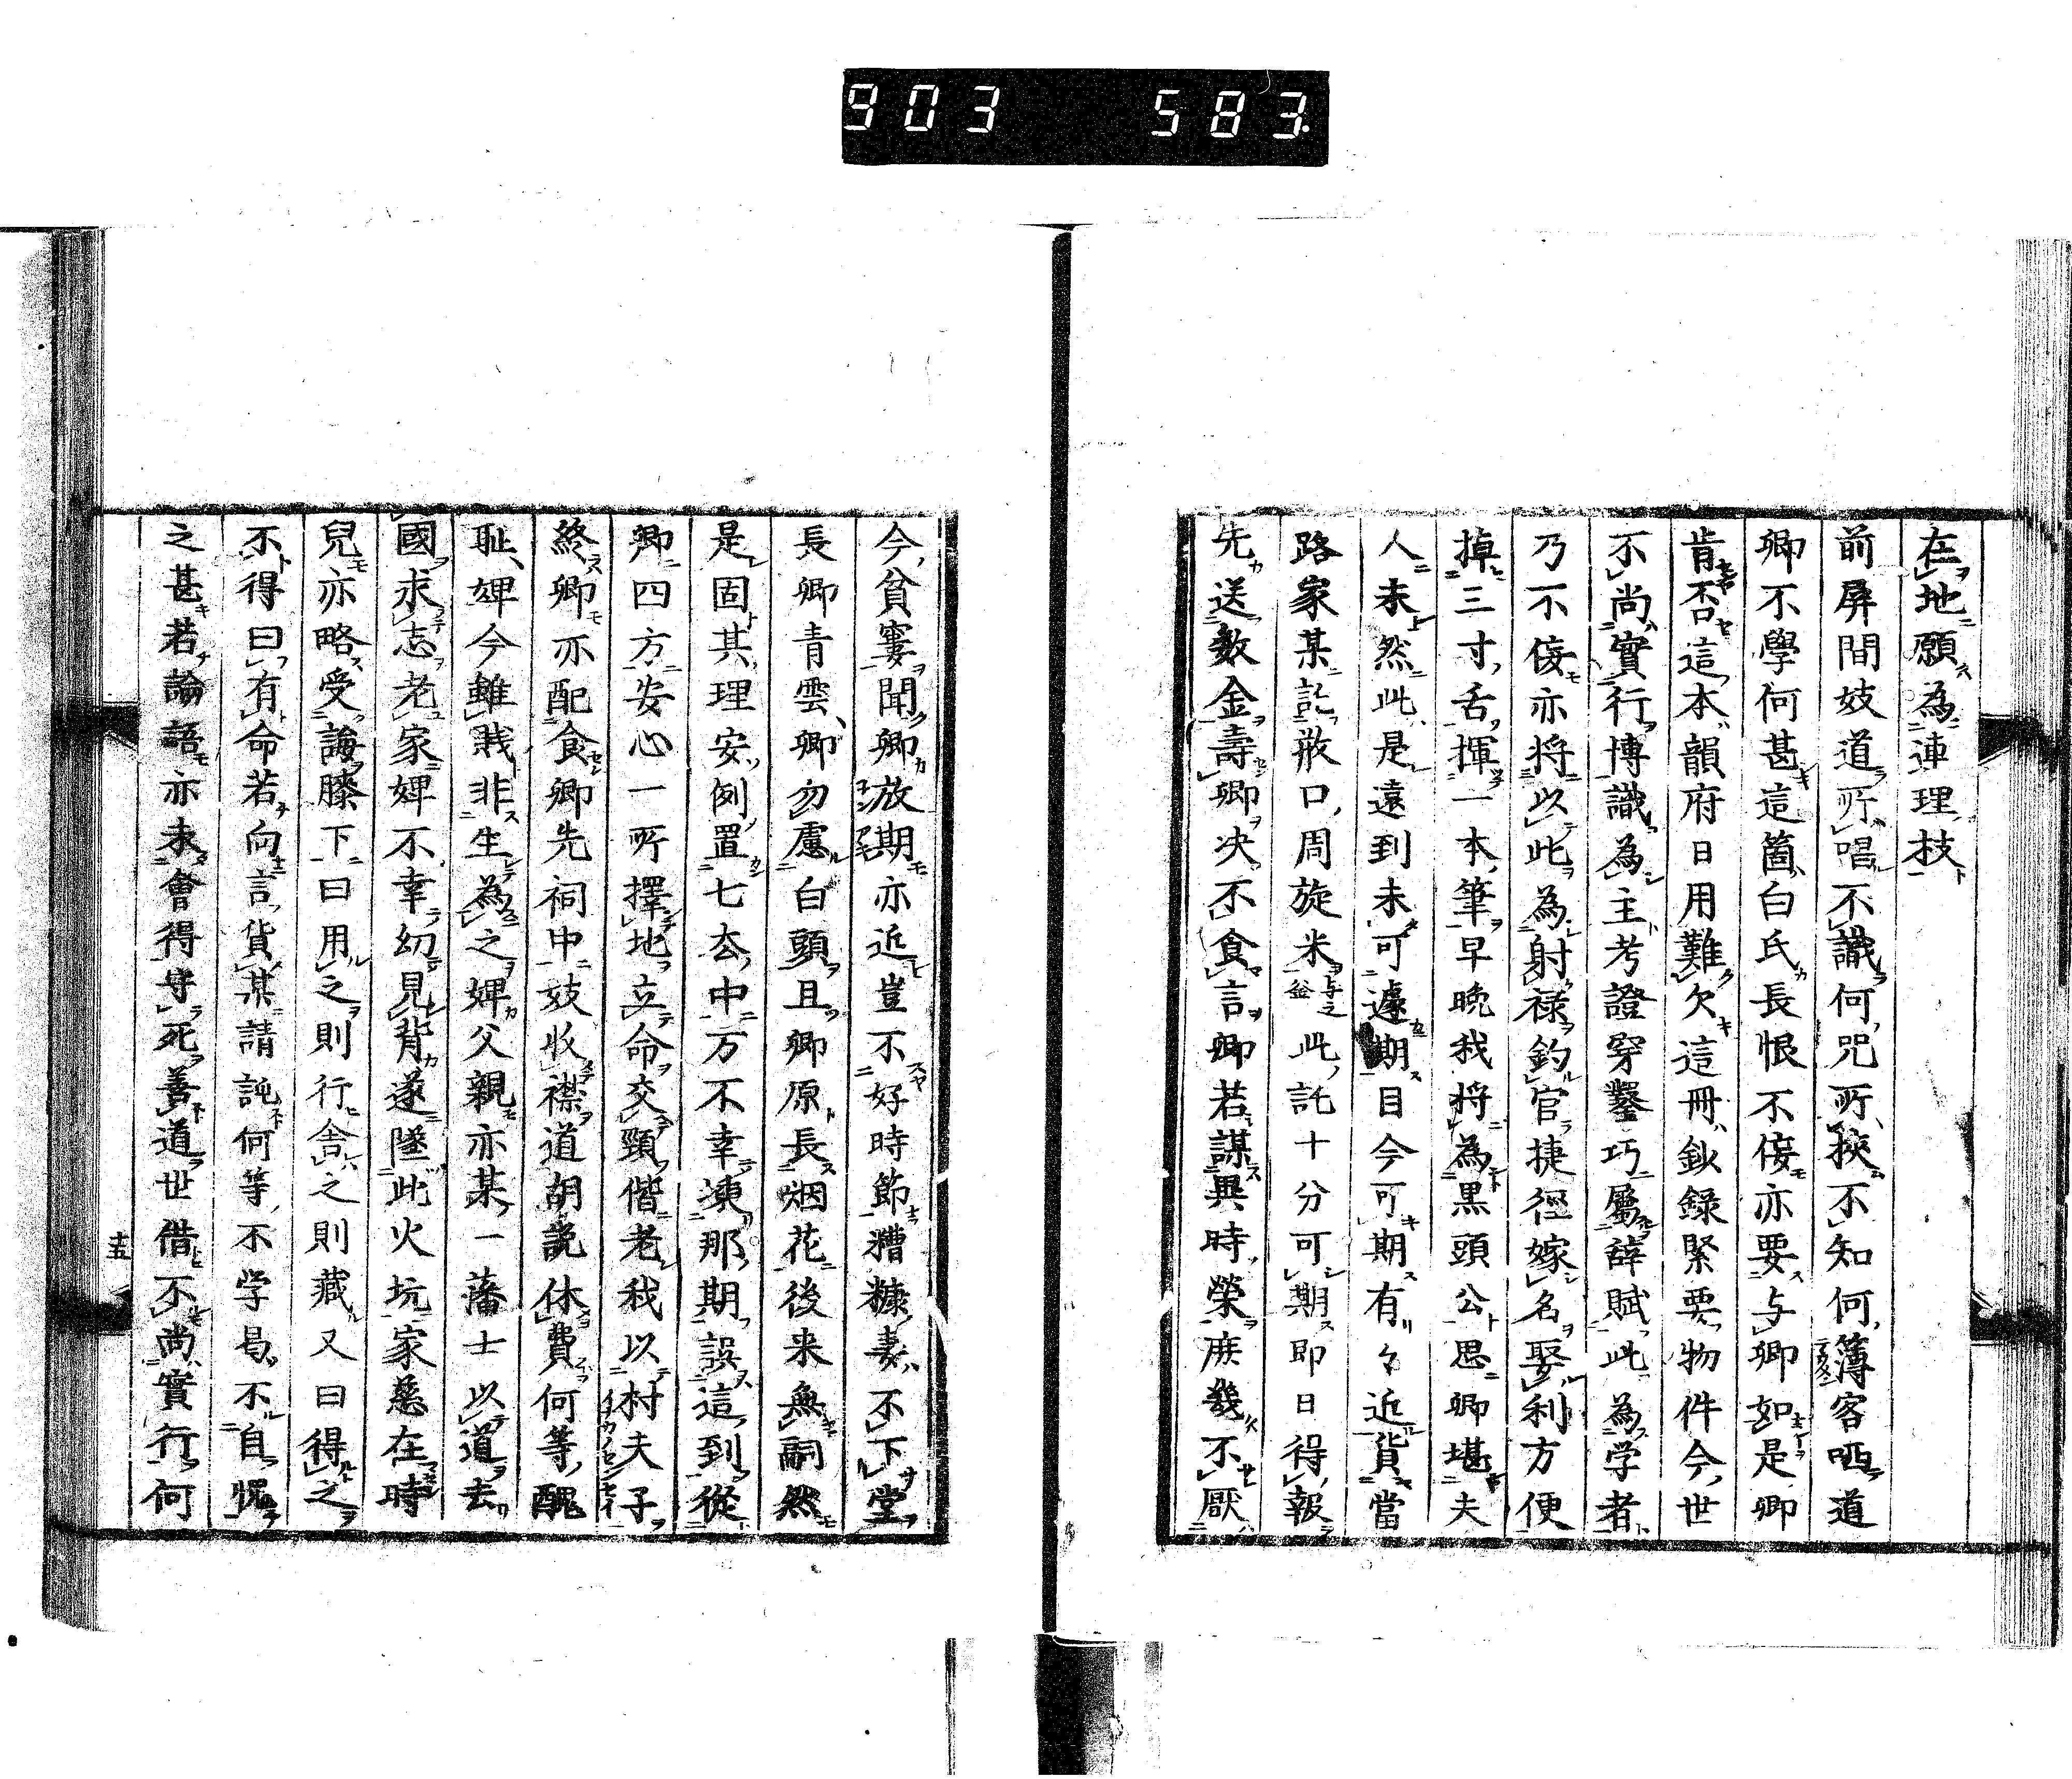 903 583
在地願為連理技
前屏間妓道所唱不識何咒所挾不知何簿客哂道
卿不學何甚這箇白氏長恨不侫亦要与卿如是卿
肯否這本韻府日用難欠這冊鈔録緊要物件今世
不尚實行博識為主考證穿鑿巧屬辭賦此為学者
乃不侫亦将以此為射禄釣官捷徑嫁名娶利方便
掉三寸舌揮一本筆早晩我将為黒頭公思卿堪夫
人未然此是遠到未可遽期目今可期有々近貨當
路家某託敝口周旋米釜此託十分可期即日得報
先送数金壽卿决不食言卿若謀異時榮庶幾不厭
今貧窶聞卿放期亦近豈不好時節糟糠妻不下堂
長卿青雲卿勿慮白頭且卿原長烟花後来無嗣然
是固其理安例置七去中万不幸凍那期誤這到從
卿四方安心一所擇地立命交頸偕老我以村夫子
終卿亦配食卿先祠中妓收襟道胡説休費何等醜
耻婢今雖賎非生為之婢父親亦某一藩士以道去
國求志老家婢不幸幼見背遂墜此火坑家慈在時
兒亦略受誨膝下曰用之則行舎之則藏又曰得之
不得曰有命若向言貨某請訰何等不学曷不自愧
之甚若論語亦未會得守死善道世借不尚實行何
十五